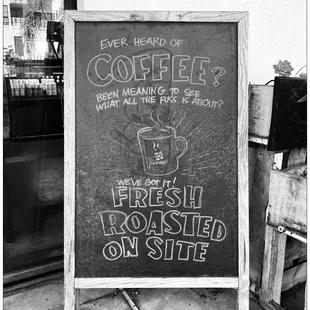 EVER HEARD OF
COFFEE?
BEEN MEANING TO SEE
WHAT ALL THE FUSS IS ABOUT?
WE'VE GOT IT!
FRESH
ROASTED
ON SITE